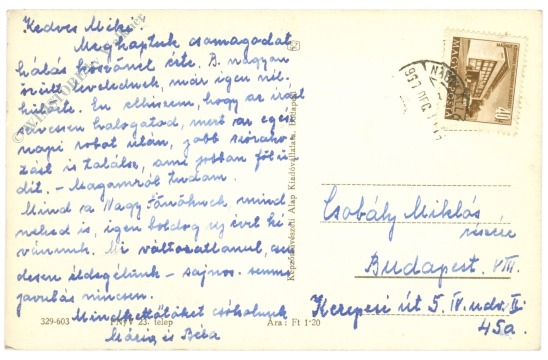 Kedves Miki!
Megkaptuk csomagodat
hálás köszönet érte. B. nagyon
örült levelednek, már igen nél-
külözte. Én elhiszem, hogy az írást
szívesen halogatod, mert az egész
napi robot után, jobb szórako-
zást is találsz, ami jobban föl is
dit. - Magamról tudom.
Mind a Nagyfőnöknek mind
neked is, igen boldog új évet kí-
vánunk. Mi változatlanul, csen-
desen éldegélünk - sajnos semmi
javulás nincsen.
Mindkettőtöket csókolunk
Mária is Béla
329-603
FNyV 23. telep
Ára: Ft 1·20
Képzőművészeti Alap Kiadóvállalata, Budapest
MAGYAR POSTA
40
Csobály Miklós
részére
Budapest. VIII.
Kerepesi út 5. IV. udv. II.
45a.